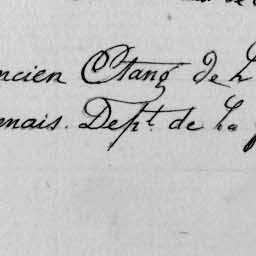 ncien Etang de L
enais. Dept. de la